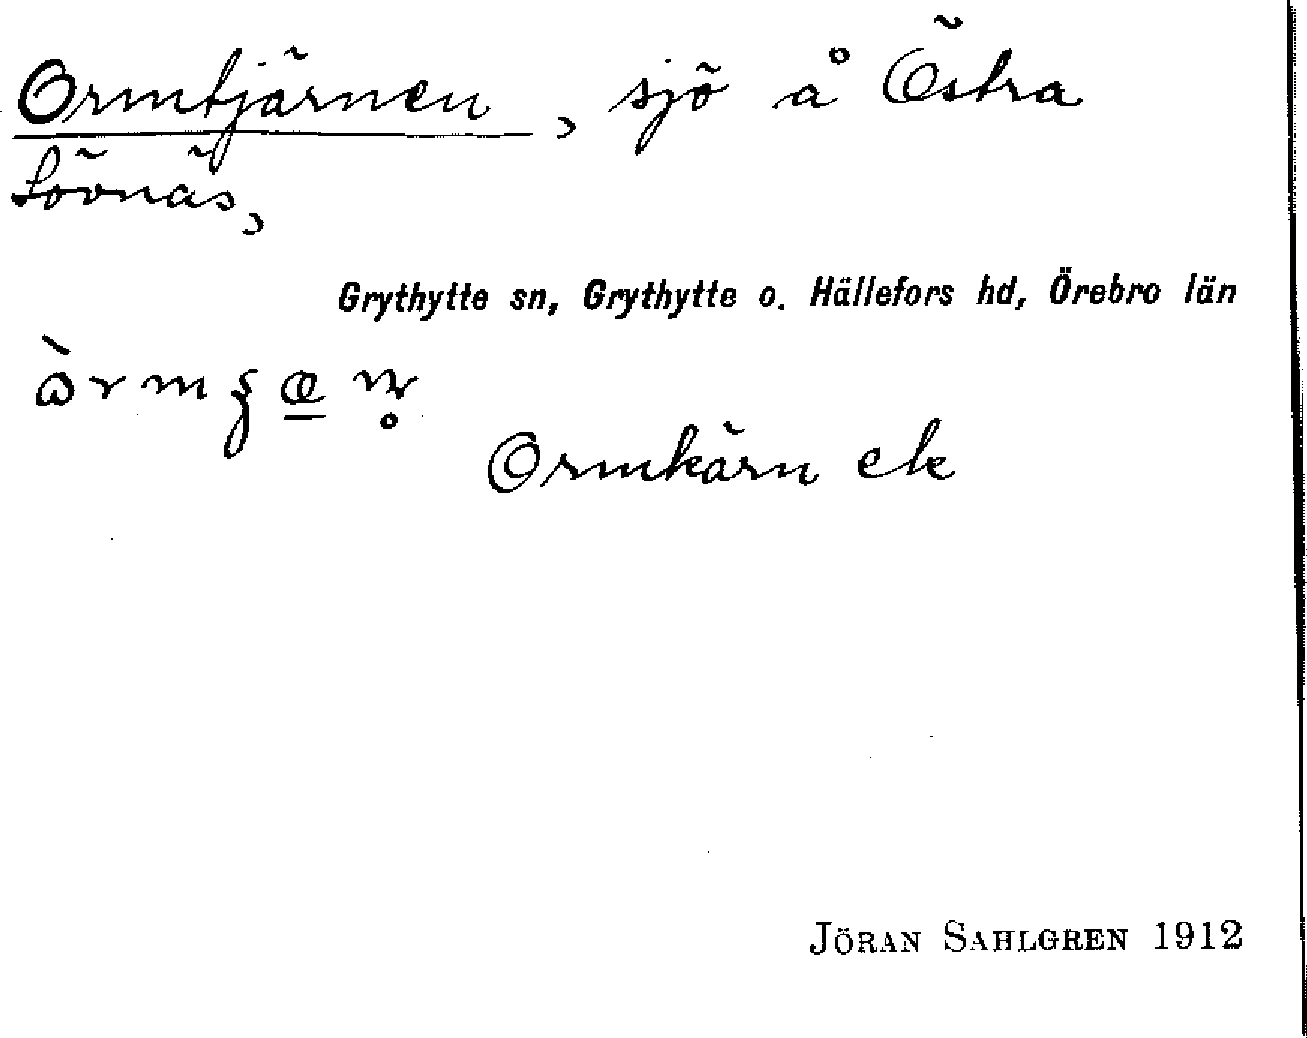 Ormtjärnen, sjö å Östra
Lövnäs,
Grythytte sn, Grythytte o. Hällefors hd, Örebro län
Ormkärn ek
JÖRAN SAHLGREN 1912